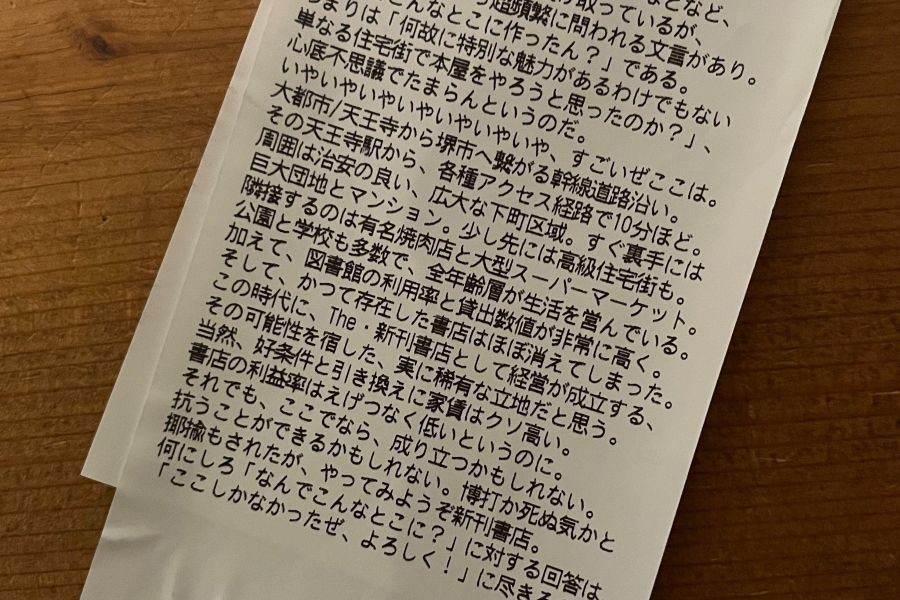 取っているが、
超頻繁に問われる文言があり。
こんなとこに作ったん?」である。
つまりは「何故に特別な魅力があるわけでもない
単なる住宅街で本屋をやろうと思ったのか?」、
心底不思議でたまらんというのだ。
いやいやいやいやいやいや、すごいぜここは。
大都市/天王寺から堺市へ繋がる幹線道路沿い。
その天王寺駅から、各種アクセス経路で10分ほど。
周囲は治安の良い、広大な下町区域。すぐ裏手には
巨大団地とマンション。少し先には高級住宅街も。
隣接するのは有名焼肉店と大型スーパーマーケット。
公園と学校も多数で、全年齢層が生活を営んでいる。
加えて、図書館の利用率と貸出数値が非常に高く。
そして、かつて存在した書店はほぼ消えてしまった。
この時代に、The・新刊書店として経営が成立する、
その可能性を宿した、実に稀有な立地だと思う。
当然、好条件と引き換えに家賃はクソ高い。
書店の利益率はえげつなく低いというのに。
それでも、ここでなら、成り立つかもしれない。
抗うことができるかもしれない。博打か死ぬ気かと
揶揄もされたが、やってみようぞ新刊書店。
何にしろ「なんでこんなとこに?」に対する回答は
「ここしかなかったぜ、よろしく!」に尽きる